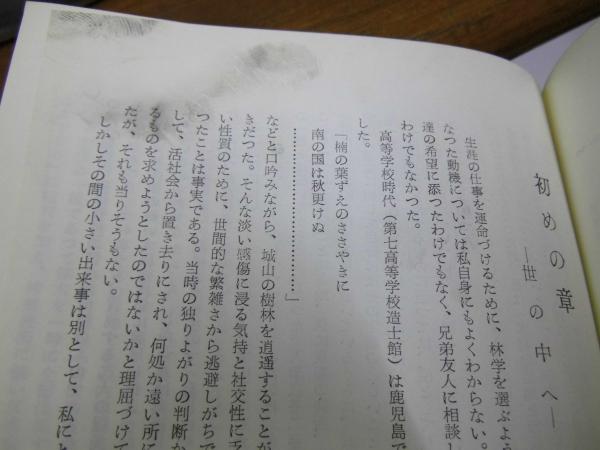 初めの章
―世の中へ―
生涯の仕事を運命づけるために、林学を選ぶよう
なつた動機については私自身にもよくわからない。
達の希望に添つたわけでもなく、兄弟友人に相談し
わけでもなかつた。
高等学校時代（第七高等学校造士館）は鹿児島で
した。
「楠の葉ずえのささやきに
南の国は秋更けぬ
……………………………」
などと口吟みながら、城山の樹林を逍遥することが
きだつた。そんな淡い感傷に浸る気持と社交性に乏
い性質のために、世間的な繁雑さから逃避しがちで
つたことは事実である。当時の独りよがりの判断か
して、活社会から置き去りにされ、何処か遠い所に
るものを求めようとしたのではないかと理屈づけて
たが、それも当りそうもない。
しかしその間の小さい出来事は別として、私にと